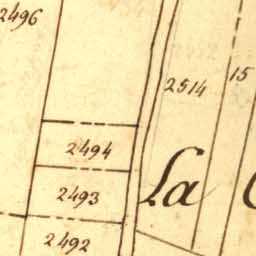 2496
2514
15
2494
2493
La
2492